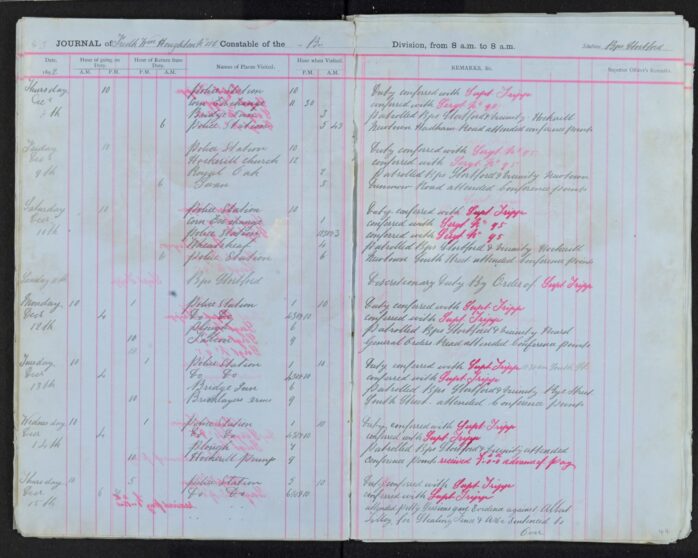 JOURNAL of Fredk Wm Houghton No 116 Constable of the B Division, from 8 a.m. to 8 a.m. Station Bps Stortford
Date. Hour of going on Duty. Hour of Return from Duty. Names of Places Visited. Hour when Visited. REMARKS, &c. Superior Officer's Remarks.
A.M. P.M. A.M. P.M. P.M. A.M.
Thursday 10 Police Station 10 Duty conferred with Supt Tripp
Dec Corn Exchange 11 30 conferred with Sergt No 95
Patrolled Bps Stortford & vicinity Hockerill
6 Police Station Newtown Hadham Road attended conference points
Friday Police Station 10 Duty conferred with Sergt No 95
Dec Hockerill Church 12 conferred with Sergt No 95
9th Royal Oak 2 Patrolled Bps Stortford & vicinity Newtown
6 Road attended Conference points
Saturday 10 Police Station 10 Duty conferred with Supt Tripp
Dec Corn Exchange 1 conferred with Sergt No 95
10th Police Station conferred with Sergt No 95
Wheatsheaf 4 Patrolled Bps Stortford & vicinity Hockerill
6 Police Station 6 Newtown South Street attended conference points
Sunday 11th Bps Stortford Discretionary Duty By Order of Supt Tripp
Monday 10 1 Police Station 1 10 Duty conferred with Supt Tripp
Dec 4 Do Do conferred with Supt Tripp
12th Plough 6 Patrolled Bps Stortford & vicinity Heard
10 9 General Orders Read attended Conference points
Tuesday 10 1 Police Station 1 10 Duty conferred with Supt Tripp
Dec 4 Do Do conferred with Supt Tripp
13th Bridge 6 Patrolled Bps Stortford & vicinity
10 Bricklayers Arms 9 South Street attended Conference points
Wednesday 10 1 Police Station 1 10 Duty conferred with Supt Tripp
Dec 4 Do Do conferred with Supt Tripp
14th Plough Patrolled Bps Stortford & vicinity attended
10 Hockerill Pump 9 conference points received advance of pay
Thursday 10 5 Police Station 5 10 Duty conferred with Supt Tripp
Dec 6 Do Do conferred with Supt Tripp
15th attended Petty Sessions gave Evidence against Albert
for Stealing & was Sentenced to
Over